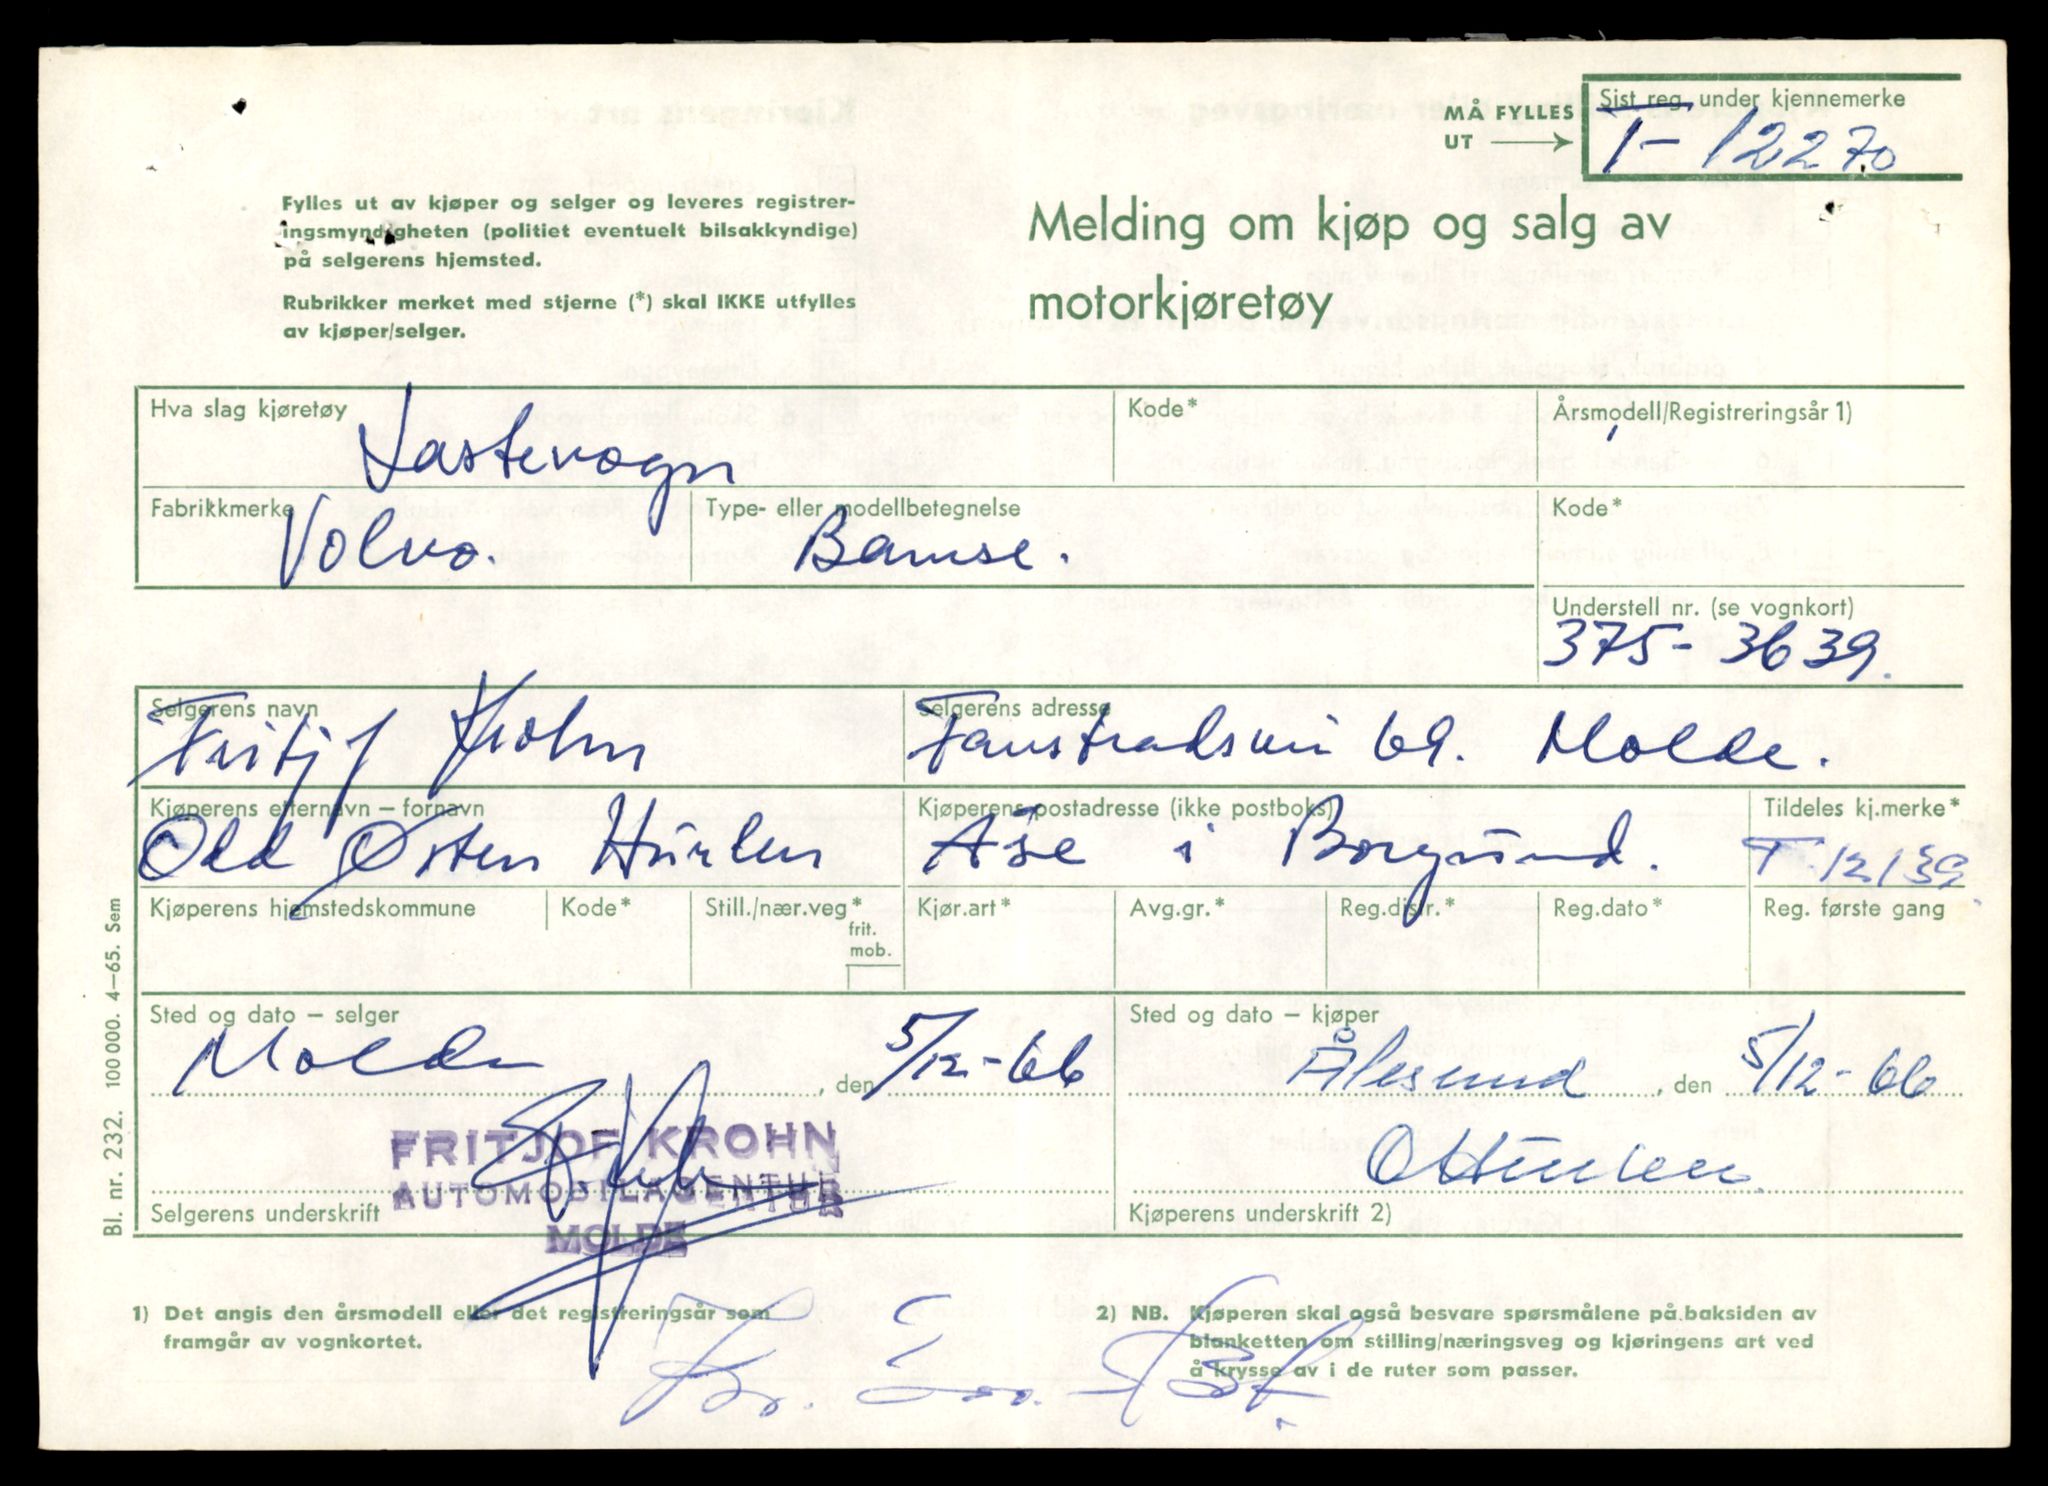 MÅ FYLLES UT
Sist reg. under kjennemerke
T-12270
Fylles ut av kjøper og selger og leveres registrer-
ingsmyndigheten (politiet eventuelt bilsakkyndige)
på selgerens hjemsted.
Rubrikker merket med stjerne (*) skal IKKE utfylles
av kjøper/selger.
Melding om kjøp og salg av
motorkjøretøy
Hva slag kjøretøy
Lastevogn
Kode*
Årsmodell/Registreringsår 1)
Fabrikkmerke
Volvo.
Type- eller modellbetegnelse
Bamse.
Kode*
Understell nr. (se vognkort)
375-3639.
Selgerens navn
Fritjof Krohn
Selgerens adresse
69. Molde.
Kjøperens etternavn – fornavn
Odd Østen Hurlen
Kjøperens postadresse (ikke postboks)
Åse i Borgund.
Tildeles kj.merke*
T-12139
Kjøperens hjemstedskommune
Kode*
Still./nær.veg*
frit.
mob.
Kjør.art*
Avg.gr.*
Reg.distr.*
Reg.dato*
Reg. første gang
Sted og dato – selger
Molde, den 5/12-66
Sted og dato – kjøper
Ålesund, den 5/12-66
FRITJOF KROHN
AUTOMOBILAGENTUR
MOLDE
Selgerens underskrift
O Hurlen
Kjøperens underskrift 2)
1) Det angis den årsmodell eller det registreringsår som
framgår av vognkortet.
2) NB. Kjøperen skal også besvare spørsmålene på baksiden av
blanketten om stilling/næringsveg og kjøringens art ved
å krysse av i de ruter som passer.
Bl. nr. 232. 100 000. 4–65. Sem